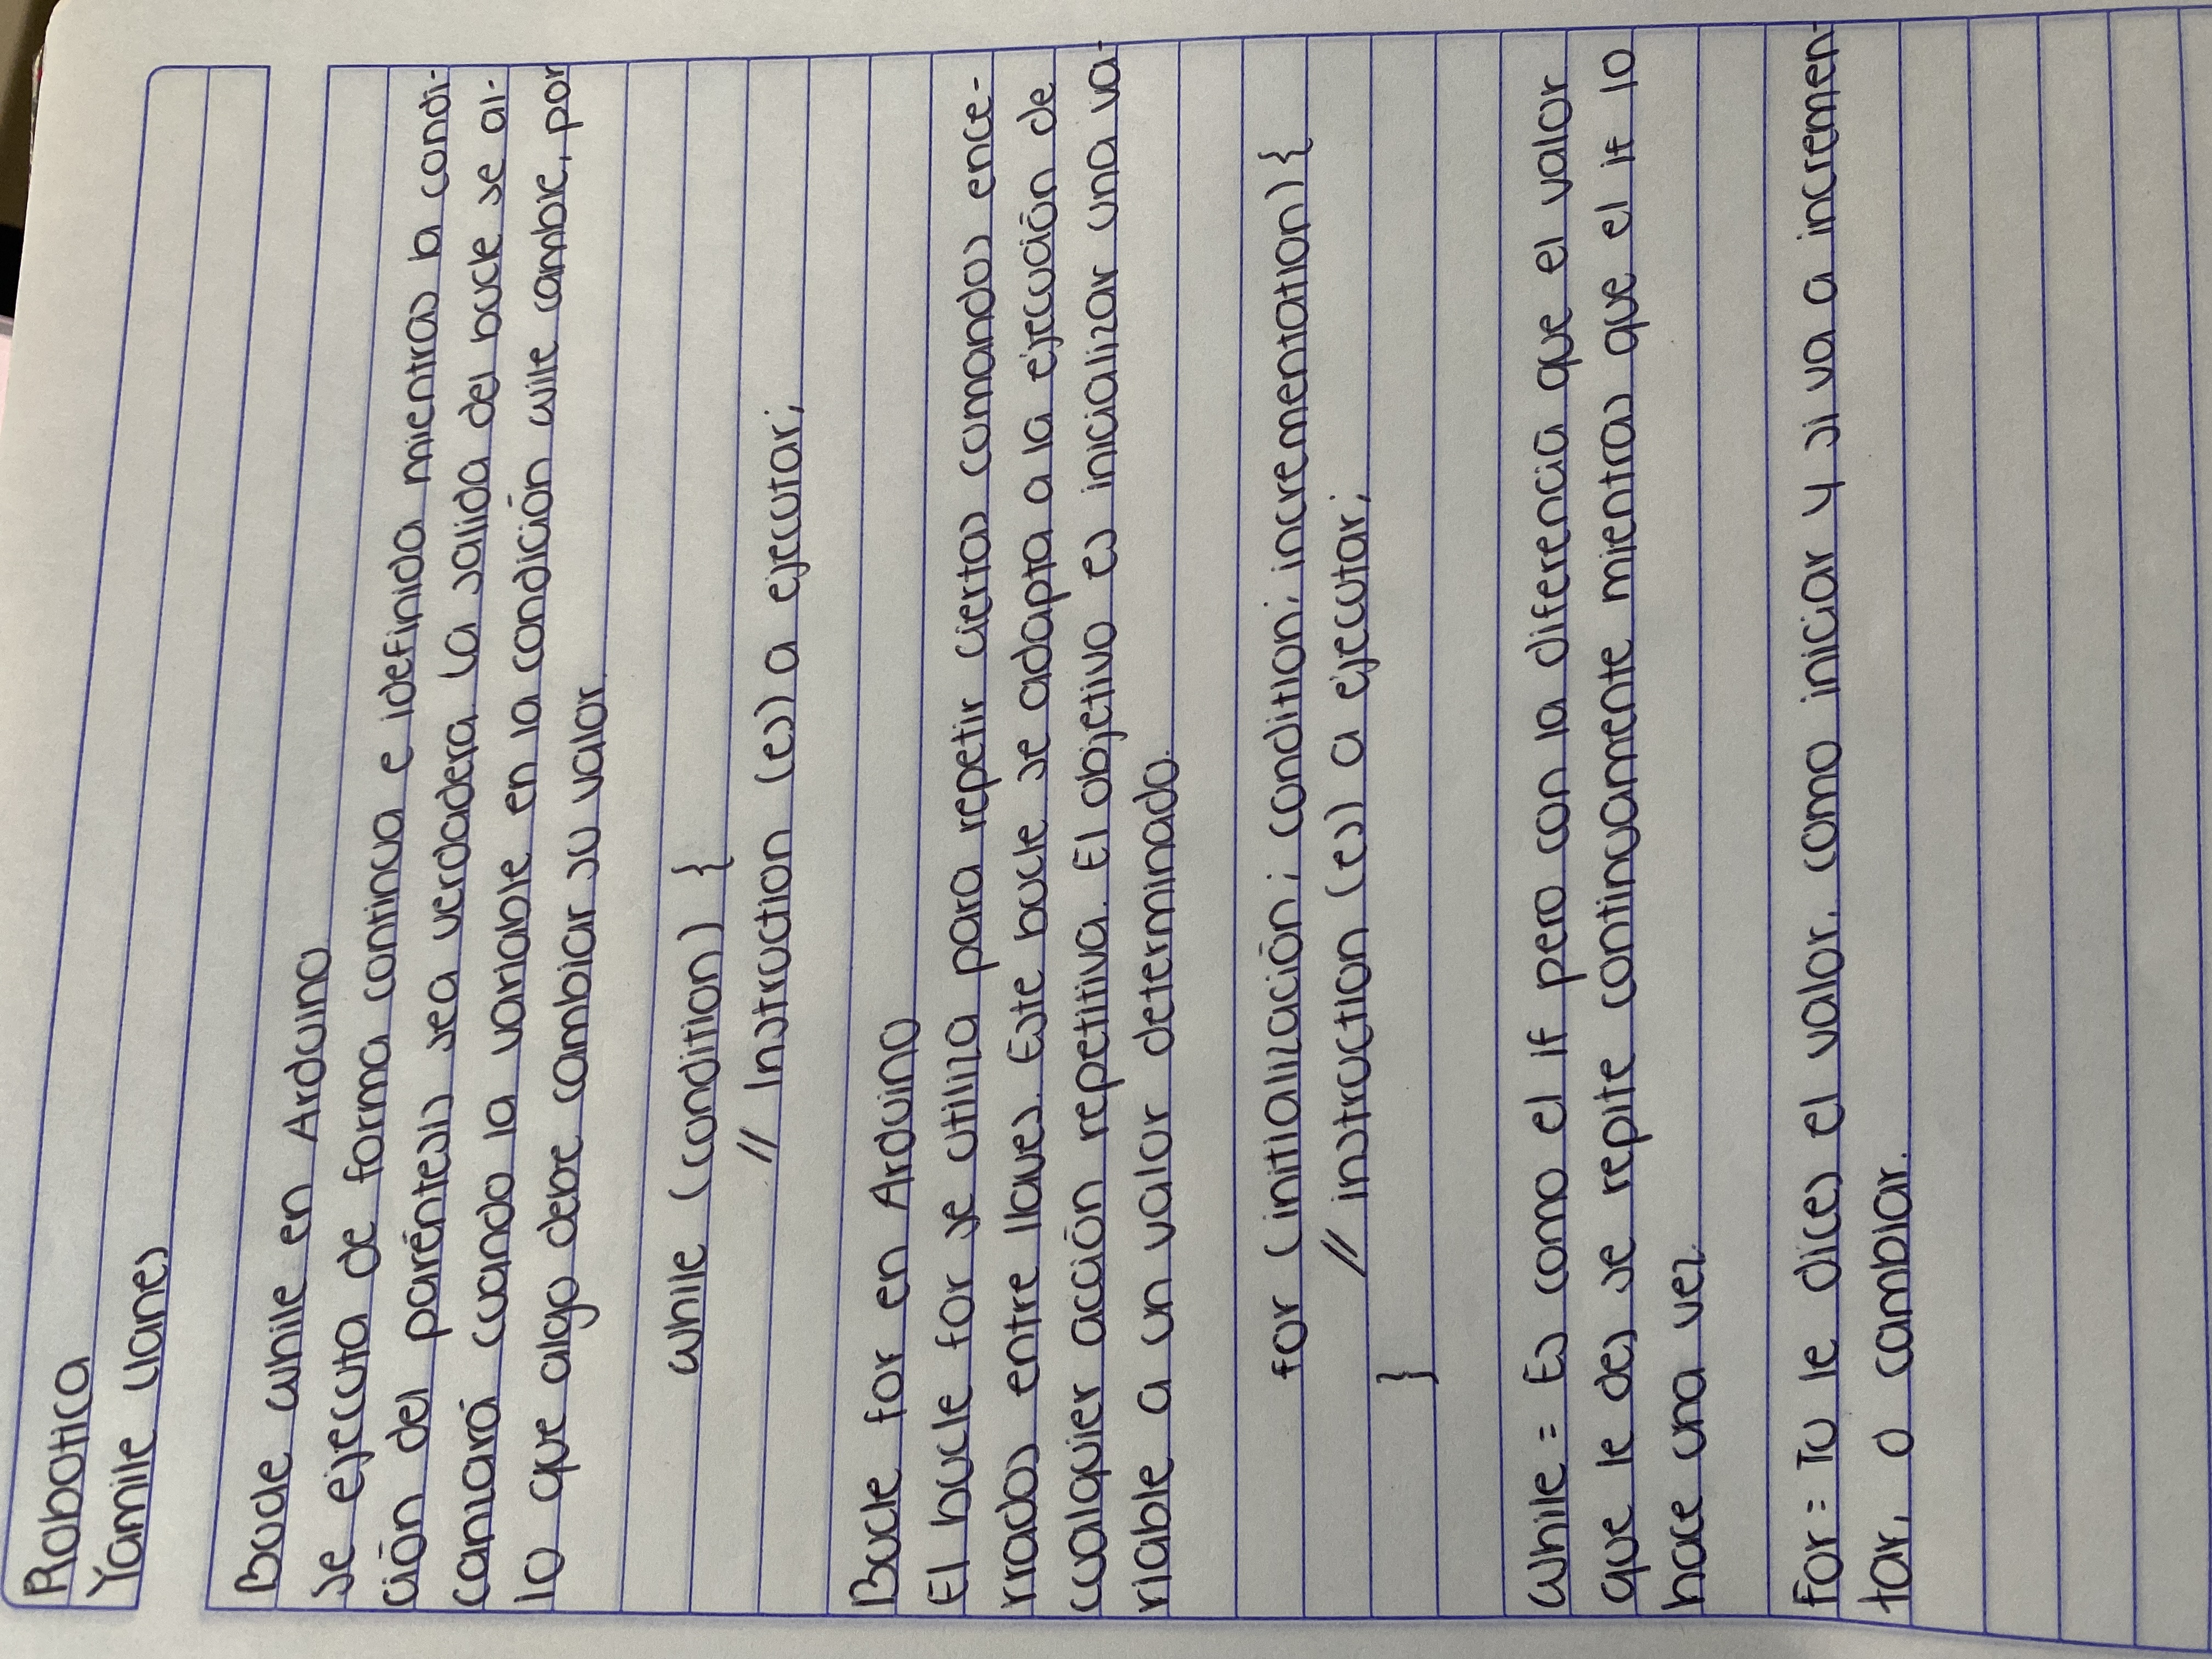 Robotica
Yamile Llanes
Bucle while en Arduino
se ejecuta de forma continua e idefinida mientras la condi-
ción del paréntesis sea verdadera La salida del bucle se al-
canzará cuando la variable en la condición wile cambie, por
lo que algo debe cambiar su valor.
while (condition) {
// Instruction (es) a ejecutar;
Bucle for en Arduino
El bucle for se utiliza para repetir ciertas comandos ence-
rrados entre llaves. Este bucle se adapta a la ejecución de
cualquier acción repetitiva. El objetivo es inicializar una va-
riable a un valor determinado.
for (initialización; condition; incrementation) {
// instruction (es) a ejecutar;
}
While = Es como el if pero con la diferencia que el valor
que le des se repite continuamente mientras que el if lo
hace una vez.
for = Tu le dices el valor, como iniciar y si va a incremen-
tar, o cambiar.